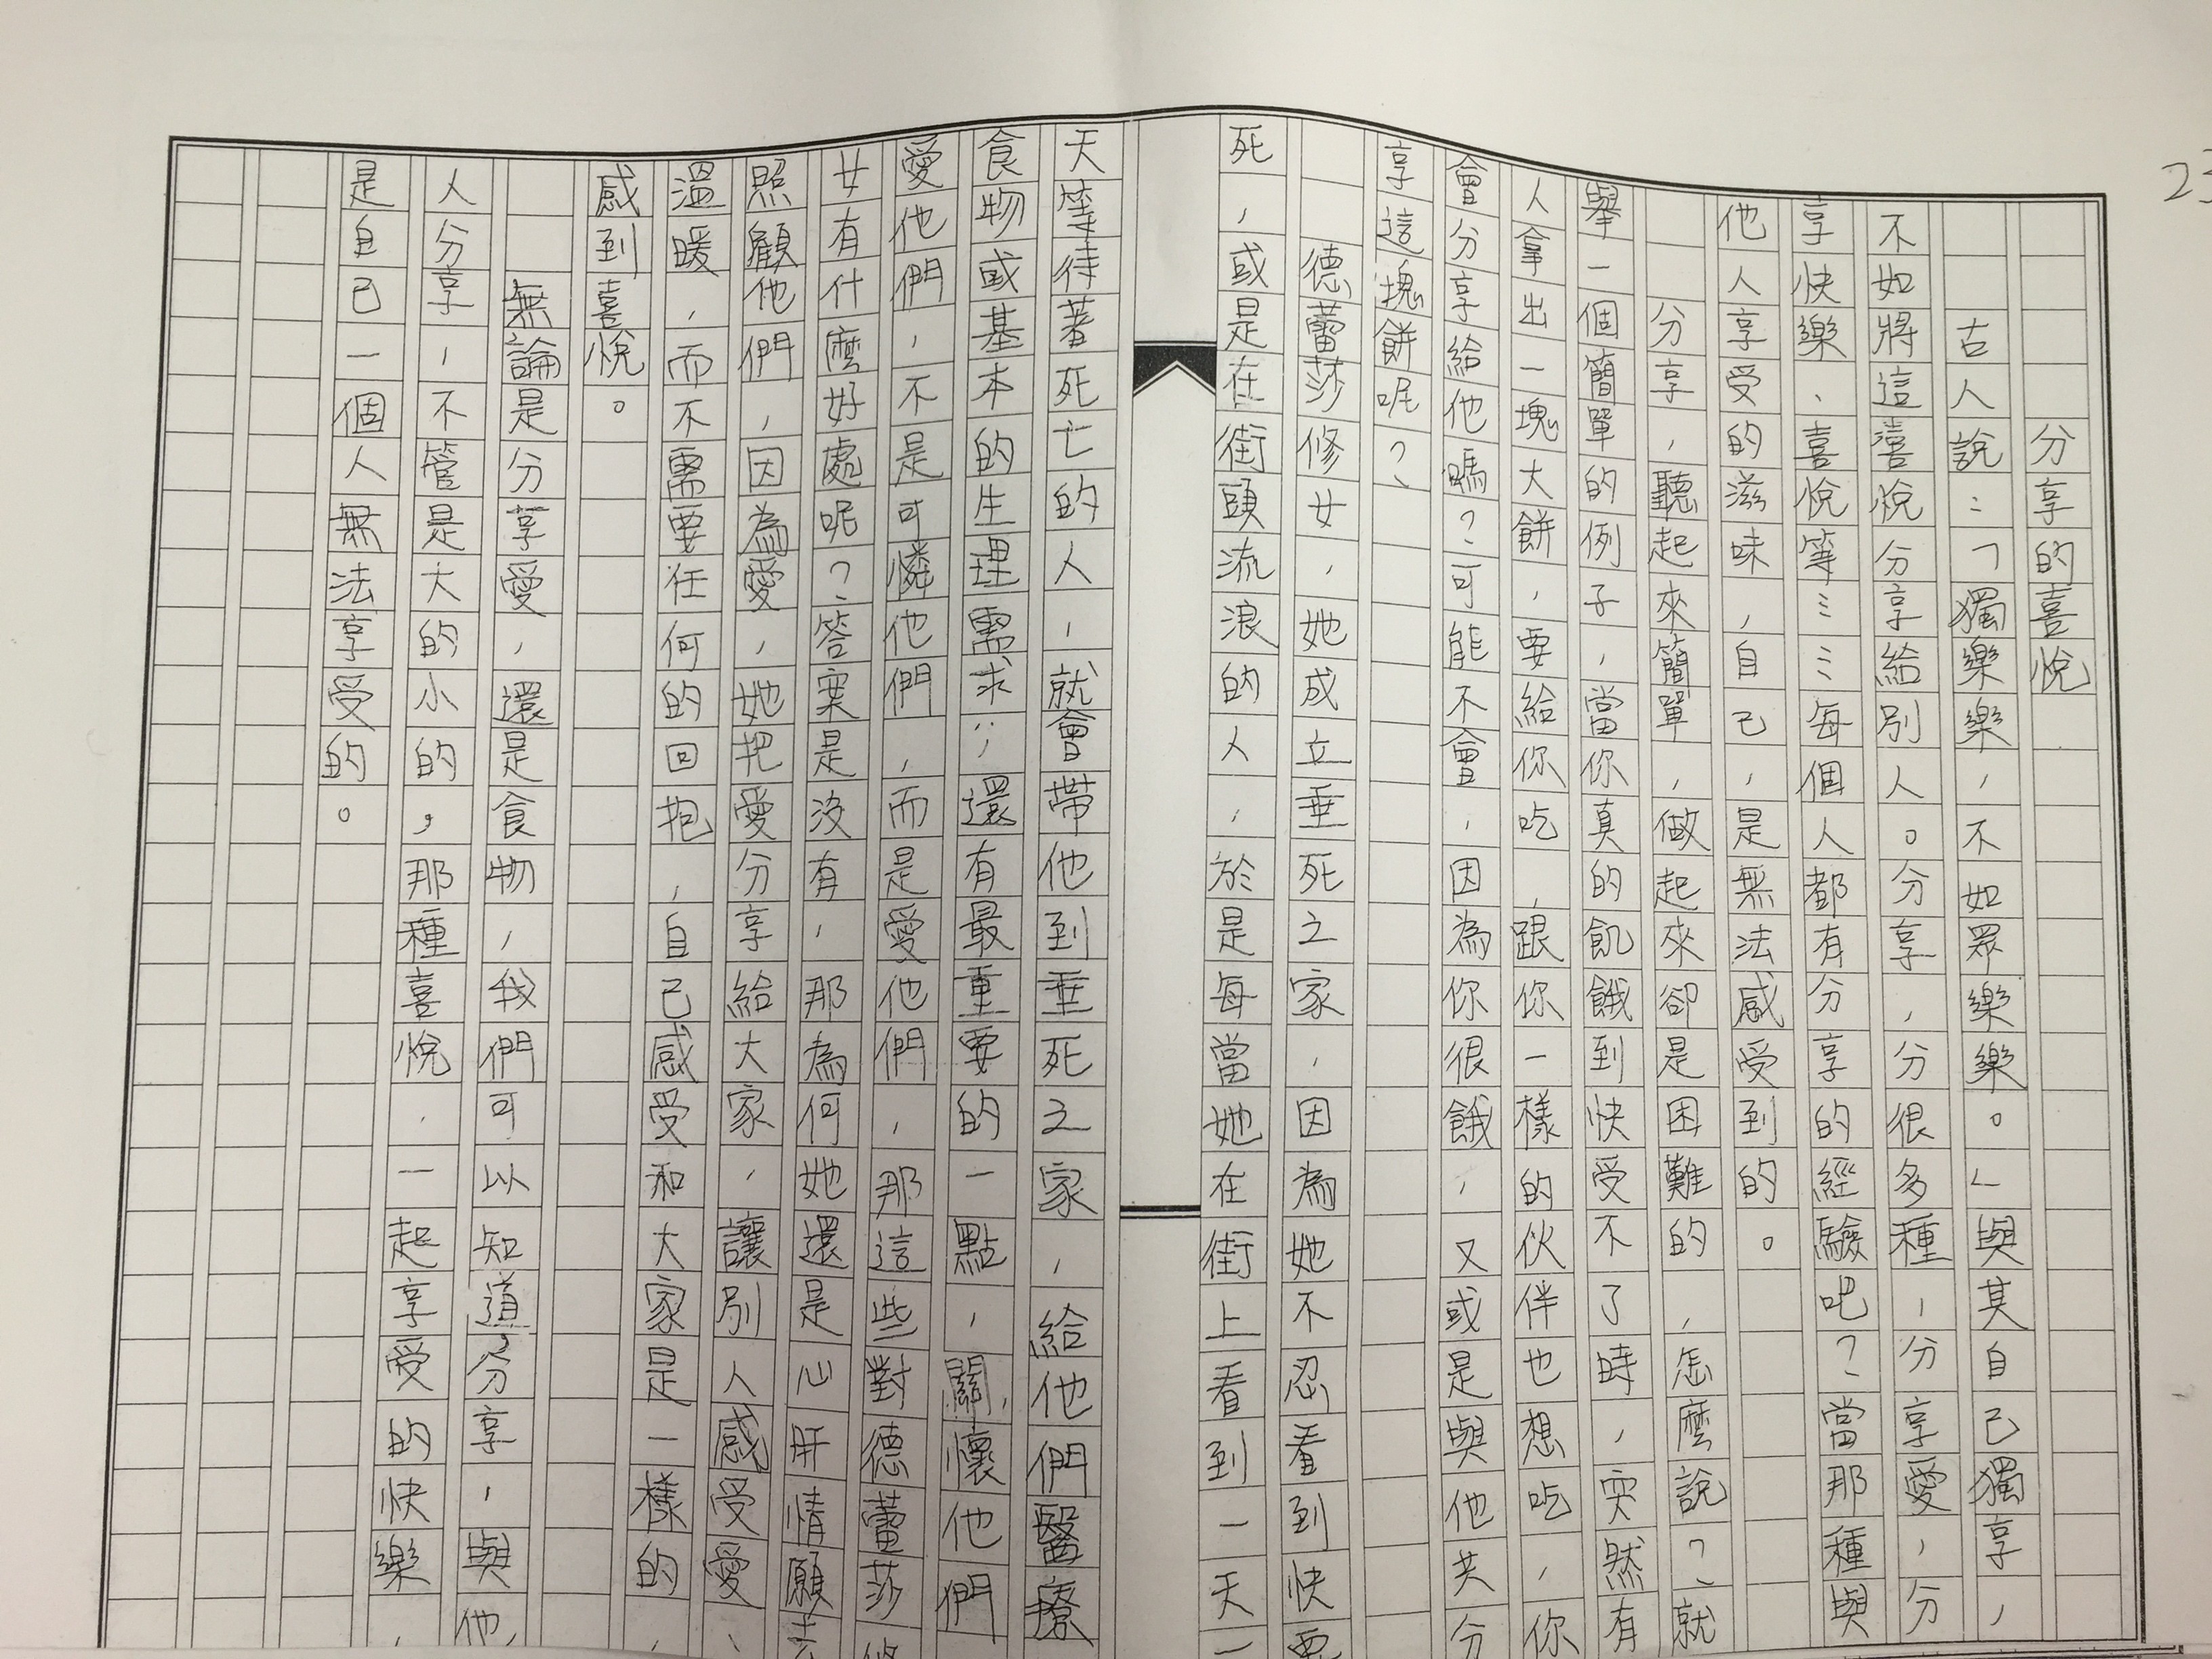 23
分享的喜悅
古人說:「獨樂樂,不如眾樂樂。」與其自己獨享,
不如將這喜悅分享給別人。分享,分很多種,分享愛,分
享快樂、喜悅等……每個人都有分享的經驗吧?當那種與
他人享受的滋味,自己,是無法感受到的。
分享,聽起來簡單,做起來卻是困難的,怎麼說?就
舉一個簡單的例子,當你真的飢餓到快受不了時,突然有
人拿出一塊大餅,要給你吃,跟你一樣的伙伴也想吃,你
會分享給他嗎?可能不會,因為你很餓,又或是與他共分
享這塊餅呢?
德蕾莎修女,她成立垂死之家,因為她不忍看到快要
死,或是在街頭流浪的人,於是每當她在街上看到一天一
天等待著死亡的人,就會帶他到垂死之家,給他們醫療
食物或基本的生理需求;還有最重要的一點,關懷他們
愛他們,不是可憐他們,而是愛他們,那這些對德蕾莎修
女有什麼好處呢?答案是沒有,那為何她還是心肝情願去
照顧他們,因為愛,她把愛分享給大家,讓別人感受愛、
溫暖,而不需要任何的回抱,自己感受和大家是一樣的,
感到喜悅。
無論是分享愛,還是食物,我們可以知道,分享,與他
人分享,不管是大的小的,那種喜悅,一起享受的快樂,
是自己一個人無法享受的。